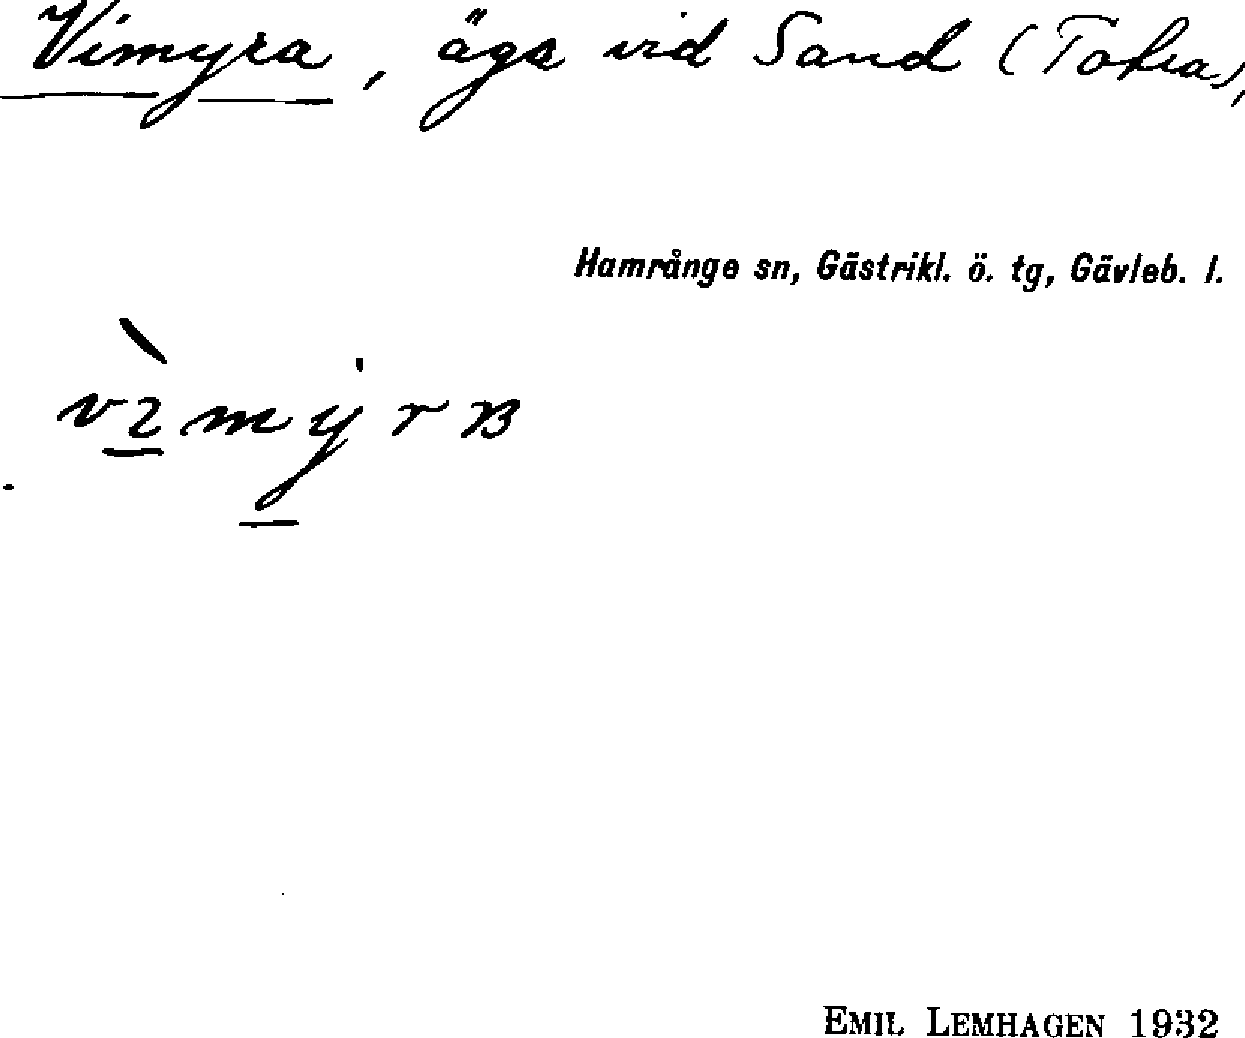 Vimyra, äga vid Sand (Tofra),
Hamrånge sn, Gästrikl. ö. tg, Gävleb. l.
EMIL LEMHAGEN 1932